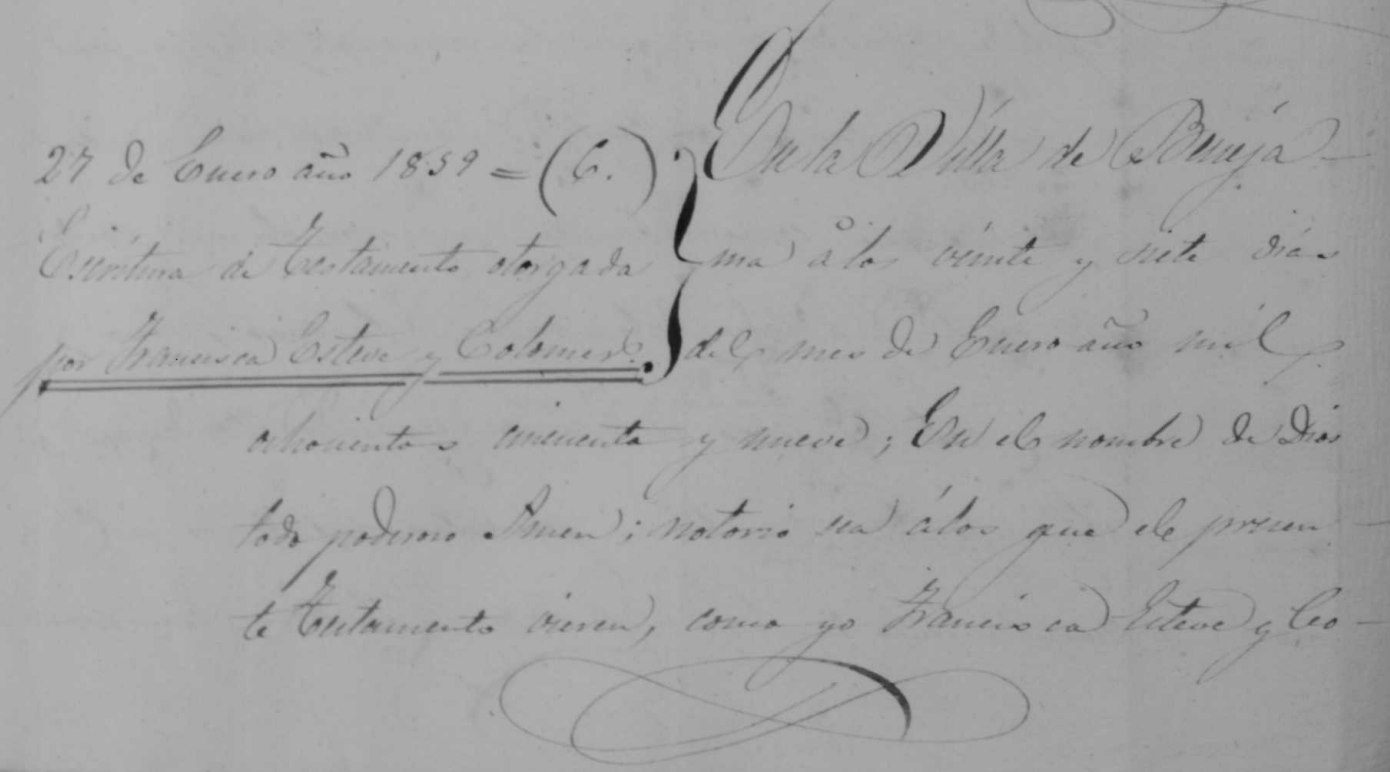 27 de Enero año 1859 = (6.)
Escritura de Testamento otorgada
por Francisca Esteve y Colomer.
En la Villa de Benéja-
ma á los veinte y siete días
del mes de Enero año mil
ochocientos cincuenta y nueve; En el nombre de Dios
todo poderoso Amen: notorio sea á los que el presen-
te Testamento vieren, como yo Francisca Esteve y Co-